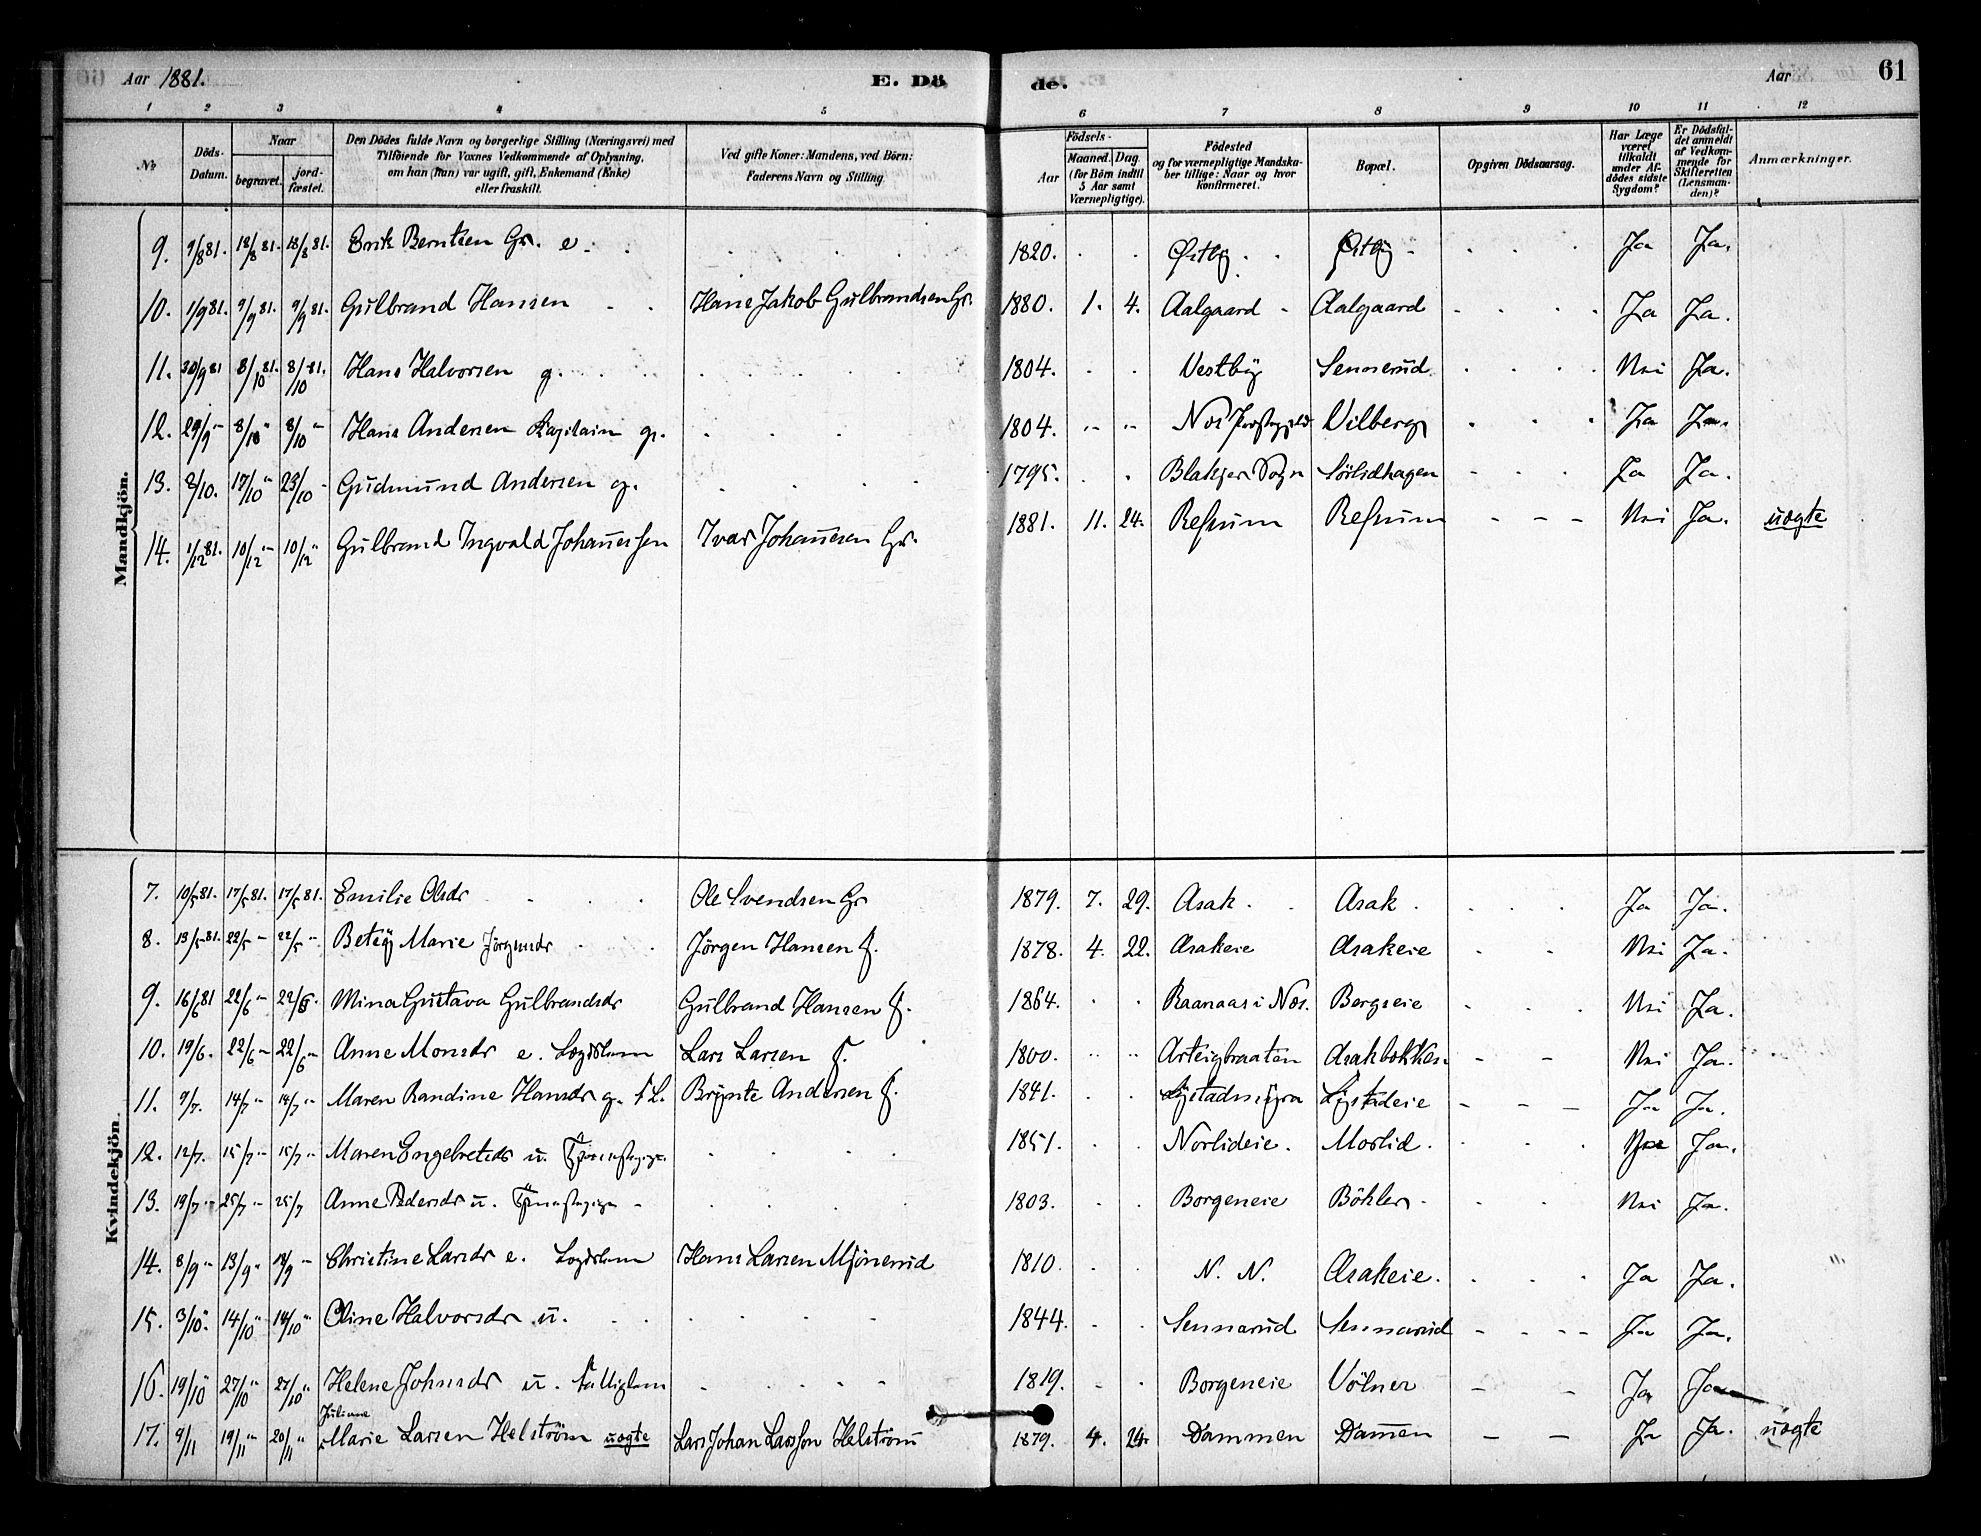 Aar 1881. E. Dö de. Aar 61
1 2 3 4 5 6 7 8 9 10 11 12
No Döds-Datum. Naar begravet. jord-fæstet. Den Dödes fulde Navn og borgerlige Stilling (Næringsvei) med Tilföiende for Voxnes Vedkommende af Oplysning, om han (hun) var ugift, gift, Enkemand (Enke) eller fraskilt. Ved gifte Koner: Mandens, ved Börn: Faderens Navn og Stilling Födsels- Aar Maaned. Dag (for Börn indtil 5 Aar samt Værnepligtige). Födested og for værnepligtige Mandskaber tillige: Naar og hvor konfirmeret. Bopæl. Opgiven Dödsaarsag. Har Læge været tilkaldt under Afdödes sidste Sygdom? Er Dödsfaldet anmeldt af Vedkommende for Skifteretten (Lensmanden)? Anmærkninger.
Mandkjön.
9. 9/8 81. 18/8 81. 18/8 81. Erik Berntsen Gr. e. 1820. Østby Østby Ja Ja.
10. 1/9 81. 9/9 81. 9/9 81. Gulbrand Hansen Hans Jakob Gulbrandsen Gr. 1880. 1. 4. Aalgaard Aalgaard Ja Ja.
11. 30/9 81 8/10 81. 8/10 81. Hans Halvorsen g. 1804. Vestby Sennerud Nei Ja.
12. 29/9 " 8/10 " 8/10 " Hans Andersen Kapitain g. 1804. " " Nes Vilberg Ja Ja.
13. 8/10. 17/10 " 23/10 Gudmund Andersen g. 1795. Blakjer Sogn Sörlidhagen Ja Ja.
14. 1/12 81. 10/12 " 10/12 " Gulbrand Ingvald Johanessen Ivar Johanesen Gr. 1881. 11. 24. Refsum Refsum Nei Ja. uægte
Kvindekjön.
7. 10/5 81. 17/5 81. 17/5 81. Emilie Olsdr Ole Svendsen Gr 1879. 7. 29. Asak Asak Ja Ja.
8. 13/5 81. 22/5 " 22/5 " Betsy Marie Jörgensdr Jörgen Hansen f. 1878. 4. 22. Asakeie Asakeie Nei Ja.
9. 16/6 81 22/6 " 22/6 " Mina Gustava Gulbrandsdr Gulbrand Hansen f. 1864. Raanaas i Nes. Bergseie Nei Ja.
10. 19/6. 22/6 " 22/6 " Anne Monsdr e. Lægdslem Lars Larsen f. 1800. " " Arteigbraaten Asakbakken Nei Ja.
11. 9/7. 14/7 " 14/7 " Maren Randine Hansdr g. Brynte Andersen f. 1841. Lystadeie Ja Ja.
12. 12/7. 15/7 " 15/7 " Maren Engebretsdr u. 1851. Norlideie. Moslid. Ja.
13. 19/7 " 25/7 " 25/7 Anne Pedersdr u. 1803. Borgeneie Böhler Nei Ja.
14. 8/9 " 13/9 " 13/9 " Christine Larsdr e. Lægdslem Hans Larsen Mjönerud 1810. N. N. Asakeie. Ja Ja.
15. 3/10 " 14/10 " 14/10 " Oline Halvorsdr u. 1844. Sennerud Sennerud Ja Ja.
16. 19/10 " 27/10 " 27/10 " Helene Johnsdr u. Fattiglem 1819. Borgeneie Völner Ja Ja
Juliane
17. 9/11 19/11 " 20/11 " Marie Larsen Helström uægte Lars Johan Larsson Helström 1879. 4. 24. Dammen Damen Ja Ja. uægte